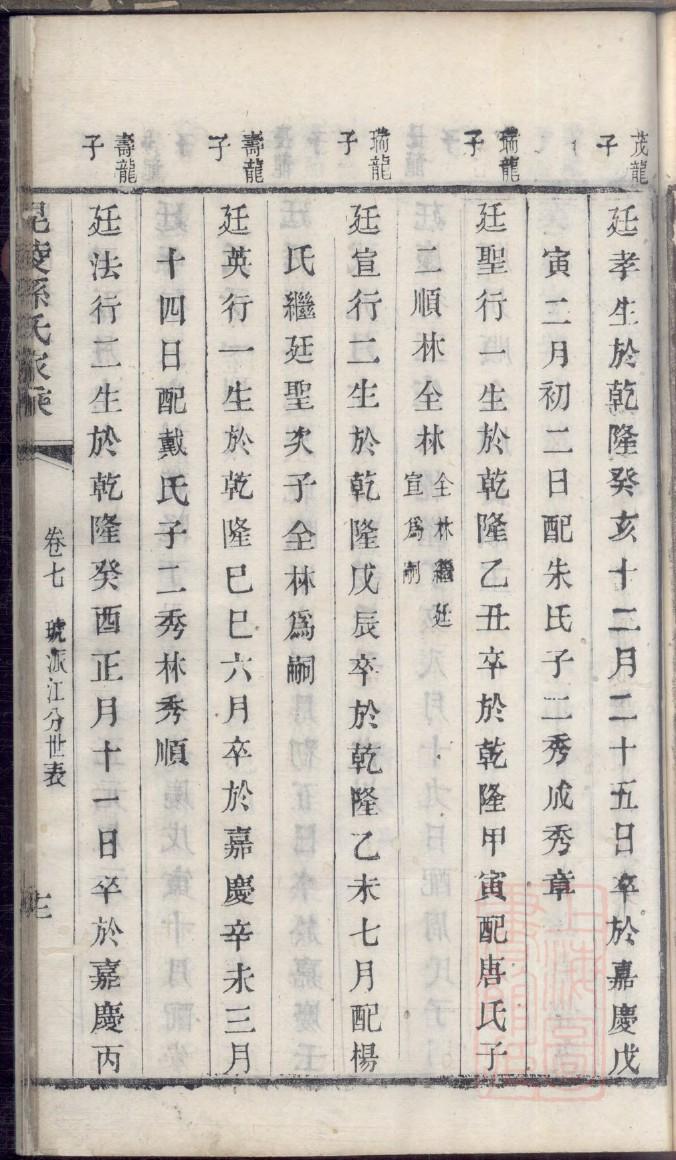 茂龍子
廷孝生於乾隆癸亥十二月二十五日卒於嘉慶戊
寅二月初二日配朱氏子二秀成秀章
瑞龍子
廷聖行一生於乾隆乙丑卒於乾隆甲寅配唐氏子
二順林全林全林繼廷宣爲嗣
瑞龍子
廷宣行二生於乾隆戊辰卒於乾隆乙未七月配楊
氏繼廷聖次子全林爲嗣
壽龍子
廷英行一生於乾隆巳巳六月卒於嘉慶辛未三月
十四日配戴氏子二秀林秀順
壽龍子
廷法行二生於乾隆癸酉正月十一日卒於嘉慶丙
毘陵孫氏家乘
卷七
琥派江分世表